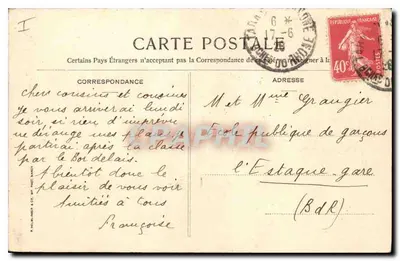 I
CARTE POSTALE
Certains Pays Étrangers n'acceptant pas la Correspondance de
CORRESPONDANCE
ADRESSE
Chers cousins et cousines
je vous arriverai lundi
soir, si rien d'imprévu
ne dérange mes plans
partirai après la classe
par le
A bientôt donc le
plaisir de vous voir
Amitiés à tous
Françoise
M et Mme Grangier
École publique de garçons
l'Estaque-gare
(BdR)
6
17-6
BCHES DU RHONE
REPUBLIQUE FRANÇAISE
40c